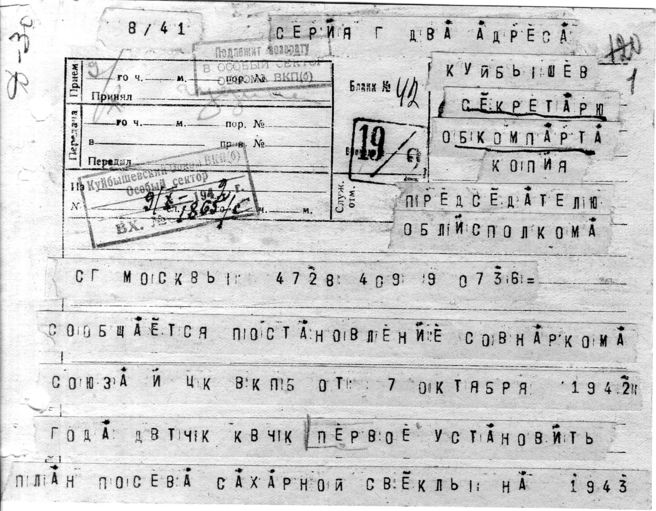 8/41 СЕРИЯ Г ДВА АДРЕСА
Подлежит возврату
в ОСОБЫЙ СЕКТОР
ОБКОМА ВКП(б)
Прием
го ч. м. пор. №
Принял
Бланк № 42
КУЙБЫШЕВ
СЕКРЕТАРЮ
ОБКОМПАРТА
КОПИЯ
ПРЕДСЕДАТЕЛЮ
ОБЛИСПОЛКОМА
Передача
го ч. м. пор. №
в пров. №
Передал
19
Куйбышевский Обком ВКП(б)
Особый сектор
9/X-1942 г.
ВХ. № 1865/с
ч. м.
Служ. отм.
СГ МОСКВЫ 4728 409 9 0736=
СООБЩАЕТСЯ ПОСТАНОВЛЕНИЕ СОВНАРКОМА
СОЮЗА И ЦК ВКПБ ОТ 7 ОКТЯБРЯ 1942
ГОДА ДВТЧК КВЧК ПЕРВОЕ УСТАНОВИТЬ
ПЛАН ПОСЕВА САХАРНОЙ СВЕКЛЫ НА 1943